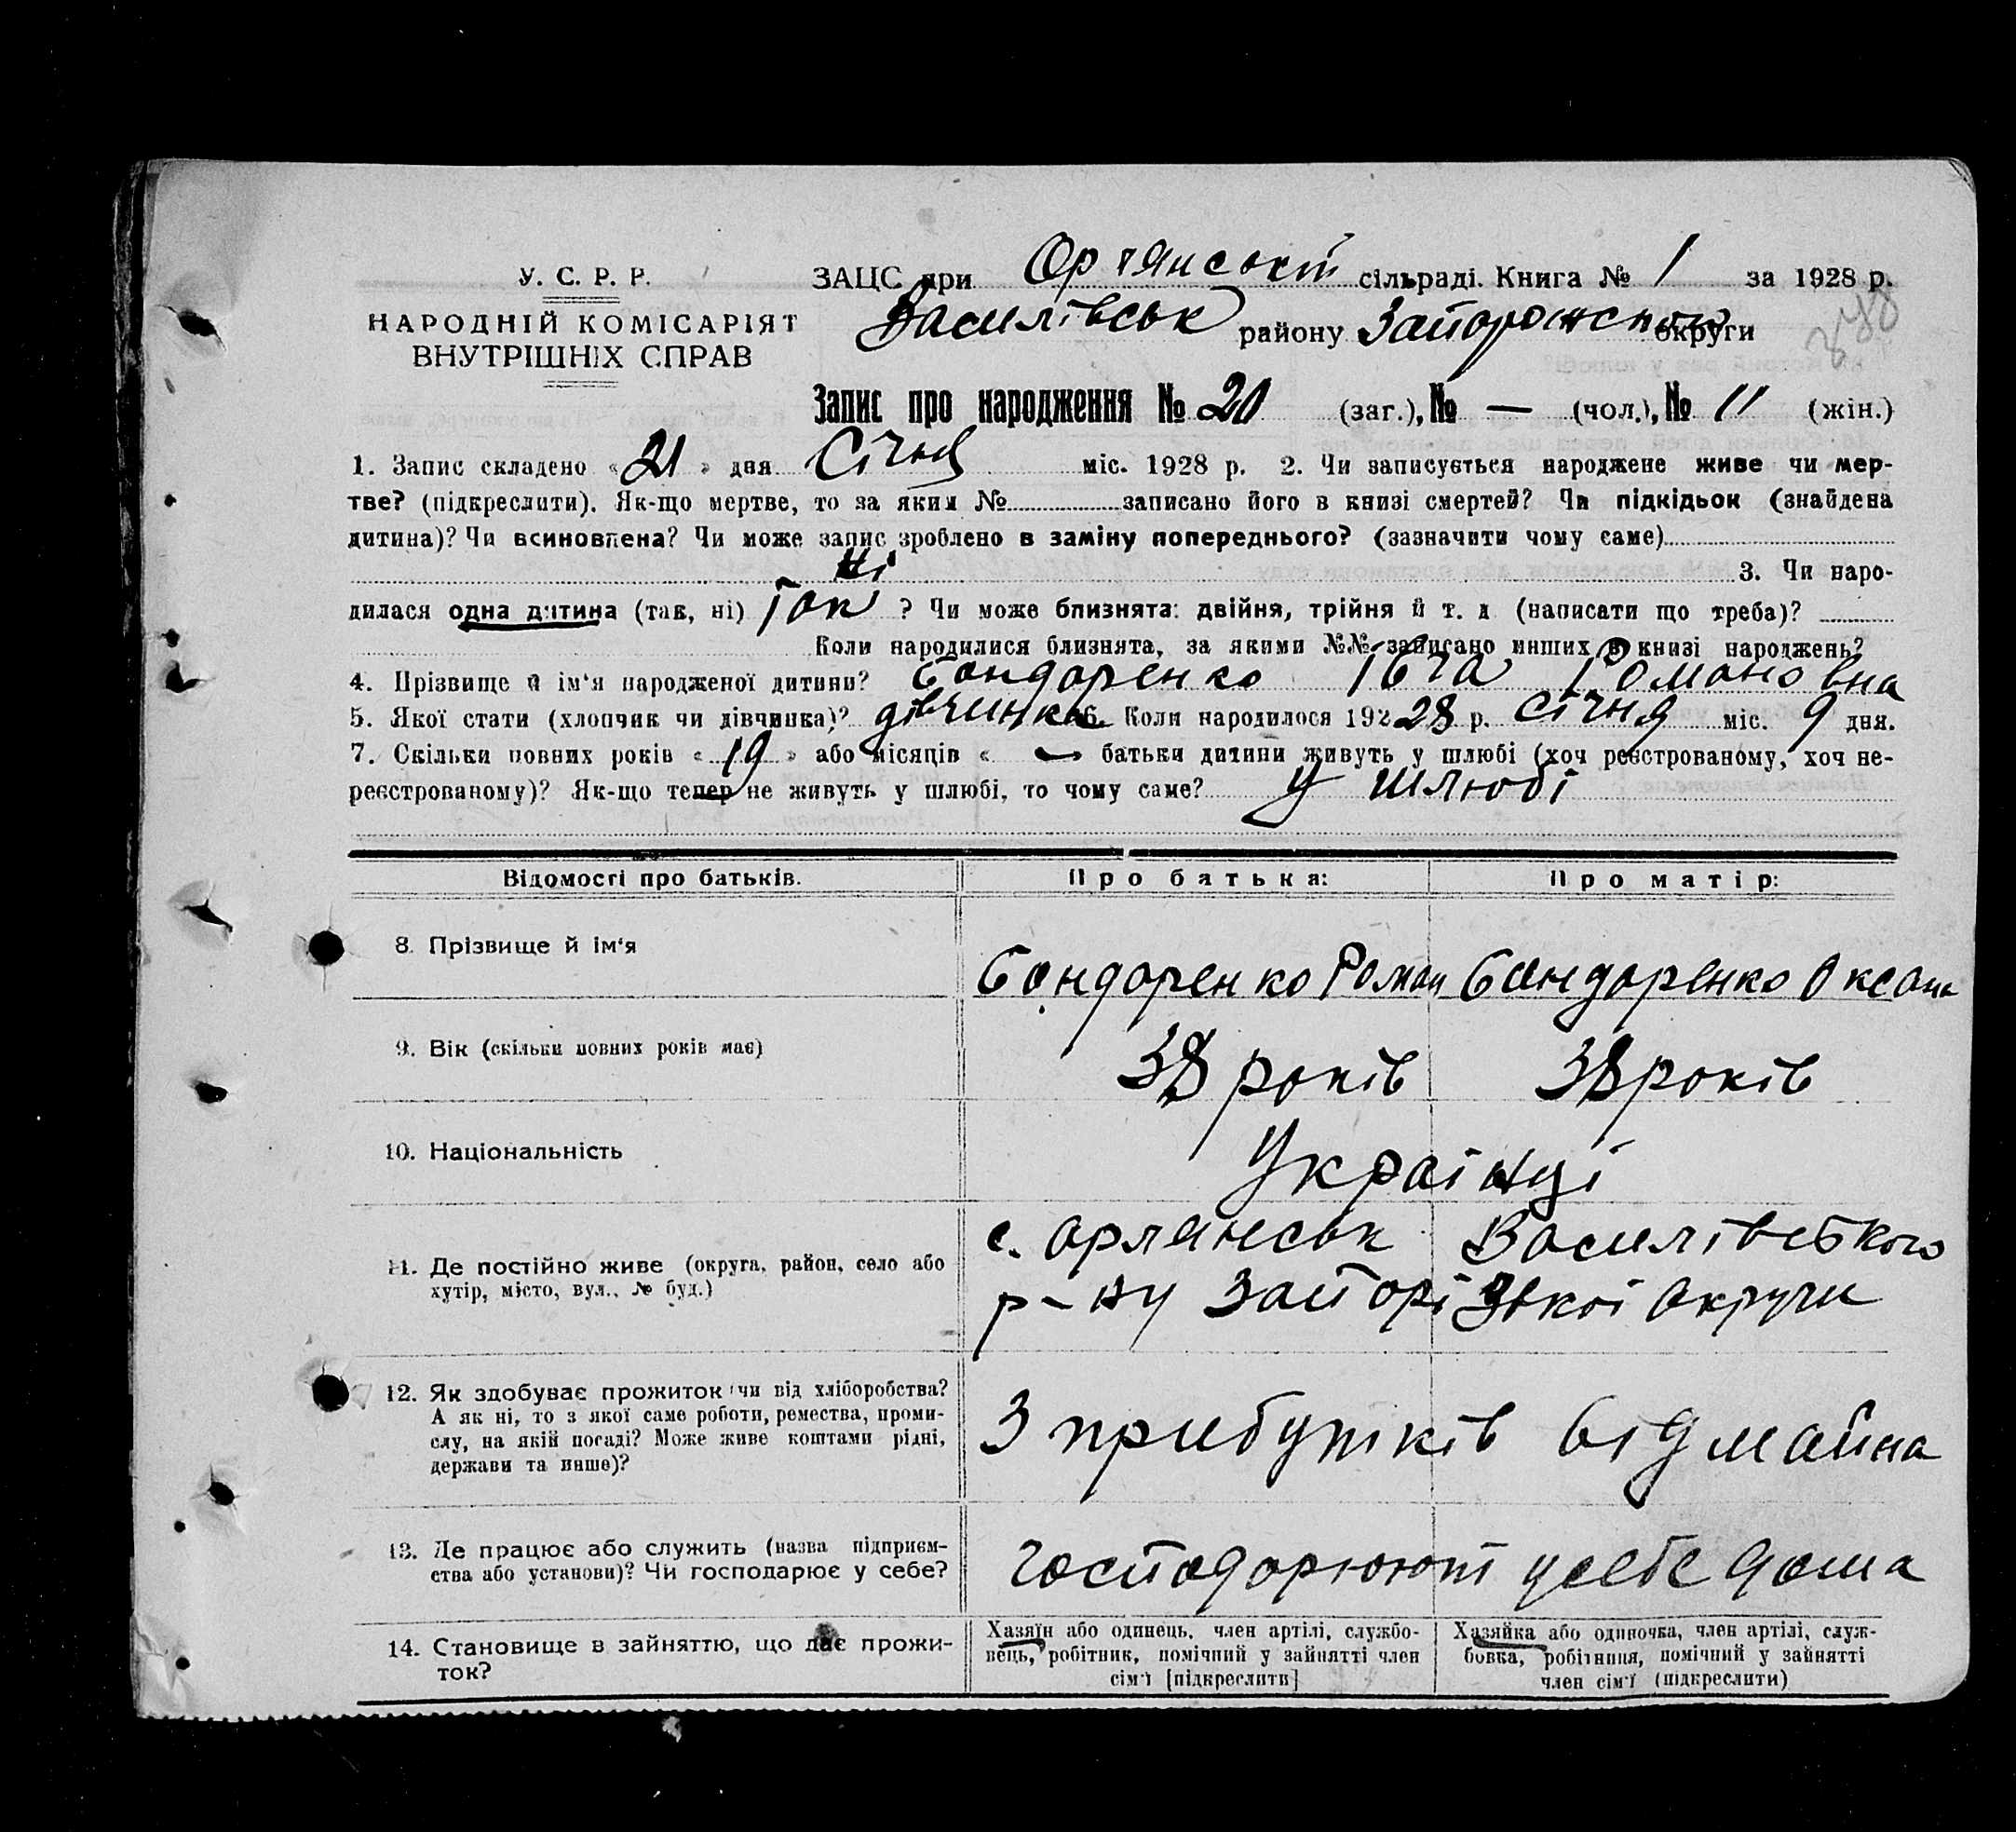 У. С. Р. Р.
НАРОДНІЙ КОМІСАРІЯТ
ВНУТРІШНІХ СПРАВ
ЗАЦС при Орлянській сільраді. Книга № 1 за 1928 р.
Василівськ району Запорожского округи
Запис про народження № 20 (заг.), № — (чол.), № 11 (жін.)
1. Запис складено «21» дня Січня міс. 1928 р. 2. Чи записується народжене живе чи мер-
тве? (підкреслити). Як-що мертве, то за яким № записано його в книзі смертей? Чи підкідьок (знайдена
дитина)? Чи всиновлена? Чи може запис зроблено в заміну попереднього? (зазначити чому саме)
Ні 3. Чи наро-
дилася одна дитина (так, ні) Так ? Чи може близнята: двійня, трійня й т. д. (написати що треба)?
Коли народилися близнята, за якими №№ записано инших в книзі народжень?
4. Прізвище й ім'я народженої дитини? Бондаренко Івга Романовна
5. Якої стати (хлопчик чи дівчинка)? дівчинка 6. Коли народилося 192 28 р. Січня міс. 9 дня.
7. Скільки повних років «19» або місяців « — батьки дитини живуть у шлюбі (хоч реєстрованому, хоч не-
реєстрованому)? Як-що тепер не живуть у шлюбі, то чому саме? У шлюбі
Відомості про батьків. Про батька: Про матір:
8. Прізвище й ім'я Бондаренко Роман Бондаренко Оксана
9. Вік (скільки повних років має) 38 років 38 років
10. Національність Українці
11. Де постійно живе (округа, район, село або
хутір, місто, вул., № буд.)
с. Орлянськ Василівського
р-ну Запорізької Округи
12. Як здобуває прожиток: чи від хліборобства?
А як ні, то з якої саме роботи, ремества, проми-
слу, на якій посаді? Може живе коштами рідні,
держави та инше)?
З прибутків від майна
13. Де працює або служить (назва підприєм-
ства або установи)? Чи господарює у себе?
Господорюют у себе дома
14. Становище в зайняттю, що дає прожи-
ток?
Хазяїн або одинець, член артілі, службо-
вець, робітник, помічний у зайнятті член
сім'ї [підкреслити]
Хазяйка або одиночка, член артілі, служ-
бовка, робітниця, помічний у зайнятті
член сім'ї (підкреслити)